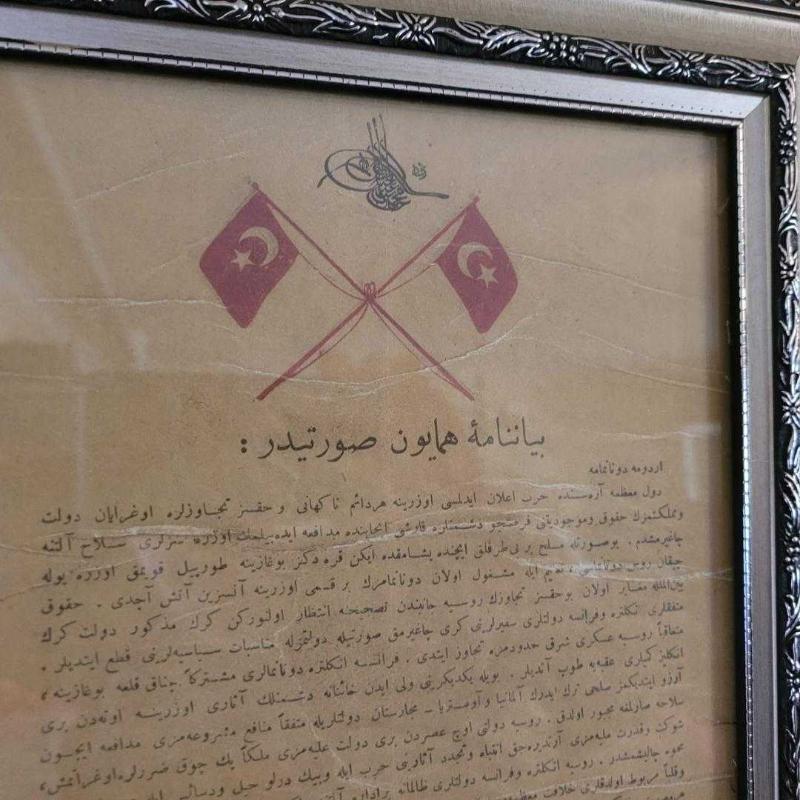 بياننامهٔ همايون صورتيدر :
اردومه دونانمامه
دول معظمه آره‌سنده حرب اعلان ايدلمسی اوزرينه هردائم ناكهانی و حقسز تجاوزلره اوغرايان دولت
ومملكتمزك حقوق وموجوديتنی فرصتجو دشمنلره قارشی ايجابنده مدافعه ايده‌بيلمك اوزره سزلری سلاح آلتنه
چاغيرمشدم . بوصورتله مسلح بر بی‌طرفلق ايچنده يشامقده ايكن قره دكز بوغازينه طورپيل قويمق اوزره يوله
چيقان روس دونانماسی تعليم ايله مشغول اولان دونانمامزك بر قسمی اوزرينه آنسزين آتش آچدی . حقوق
بين‌الملله مغاير اولان بوحقسز تجاوزك روسيه جانبندن تصحيحنه انتظار اولنوركن كرك مذكور دولت كرك
متفقلری انكلتره وفرانسه دولتلری سفيرلرينی كری چاغيرمق صورتيله دولتمزله مناسبات سياسيه‌لرينی قطع ايتديلر .
متعاقباً روسيه عسكری شرق حدودمزه تجاوز ايتدی . فرانسه انكلتره دونانمالری مشتركاً چناق قلعه بوغازينه ،
انكليز كميلری عقبه‌يه طوپ آتديلر . بويله يكديكرينی ولی ايدن خائنانه دشمنلك آثاری اوزرينه اوته‌دن بری
آرزو ايتديكمز سلحی ترك ايدرك آلمانيا و آوستريا ـ مجارستان دولتلريله متفقاً منافع مشروعه‌مزی مدافعه ايچون
سلاحه صارلمغه مجبور اولدق . روسيه دولتی اوچ عصردن بری دولت عليه‌مزی ملكاً پك چوق ضررلره اوغراتمش ،
شوكت وقدرت مليه‌مزی آرتديره‌جق انتباه وتجدد آثارينی حرب ايله وبيك درلو حيل ودسائس
محوه چاليشمشدر . روسيه انكلتره وفرانسه دولتلری ظالمانه
وقلباً مربوط اولدقلری خلافت معظمه